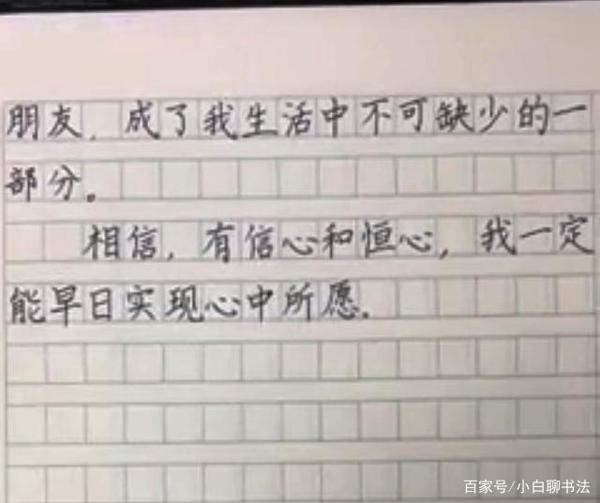 朋友，成了我生活中不可缺少的一
部分。
相信，有信心和恒心，我一定
能早日实现心中所愿。
百家号/小白聊书法